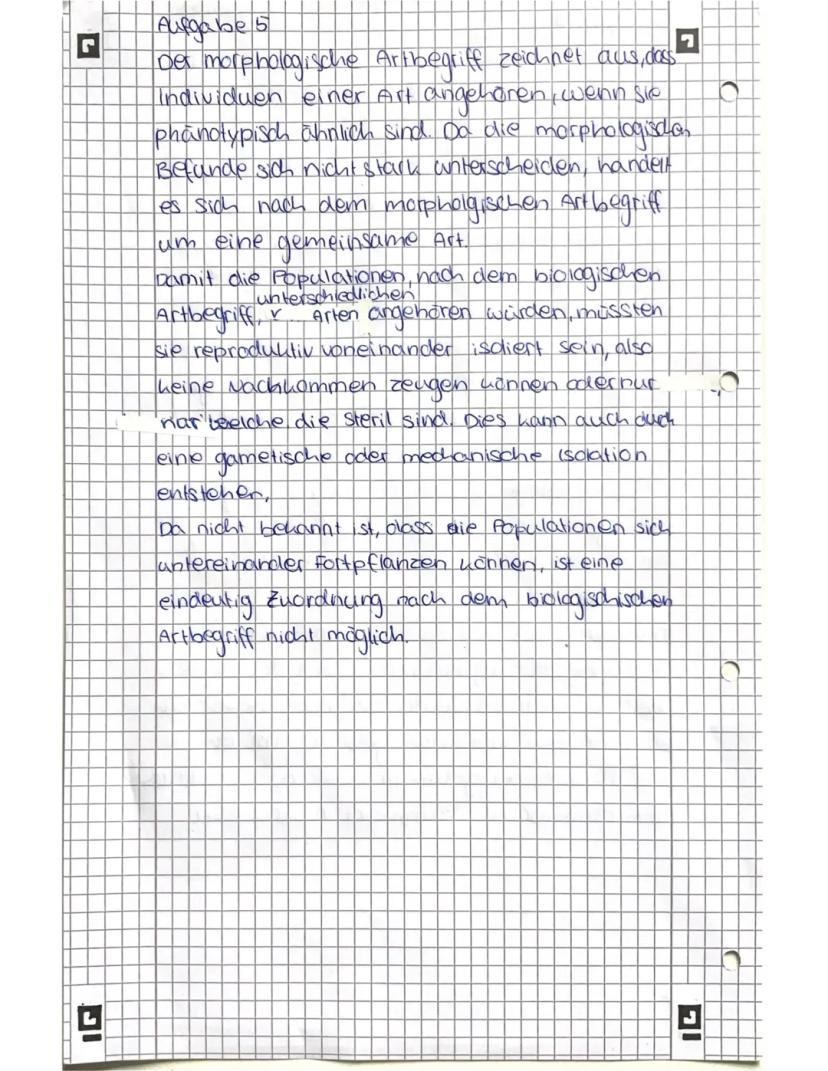 Aufgabe 5
Der morphologische Artbegriff zeichnet aus, dass
Individuen einer Art angehören, wenn sie
phänotypisch ähnlich sind. Da die morphologischen
Befunde sich nicht stark unterscheiden, handelt
es sich nach dem morpholgischen Artbegriff
um eine gemeinsame Art.
Damit die Populationen, nach dem biologischen
unterschiedlichen
Artbegriff, Arten angehören würden, müssten
sie reproduktiv voneinander isoliert sein, also
keine Nachkommen zeugen können oder nur
welche die steril sind. Dies kann auch duch
eine gametische oder mechanische Isolation
entstehen.
Da nicht bekannt ist, dass die Populationen sich
untereinander fortpflanzen können, ist eine
eindeutig Zuordnung nach dem biologischischen
Artbegriff nicht möglich.